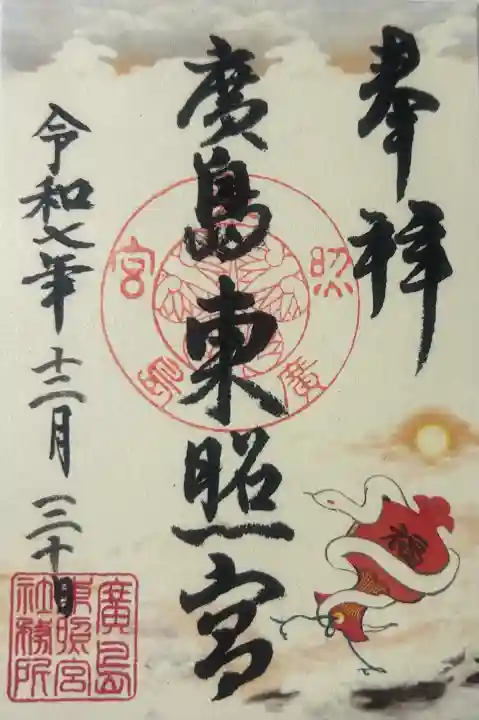 奉拝
廣島東照宮
令和七年十二月三十日
照
宮
廣
廣島
東照宮
社務所